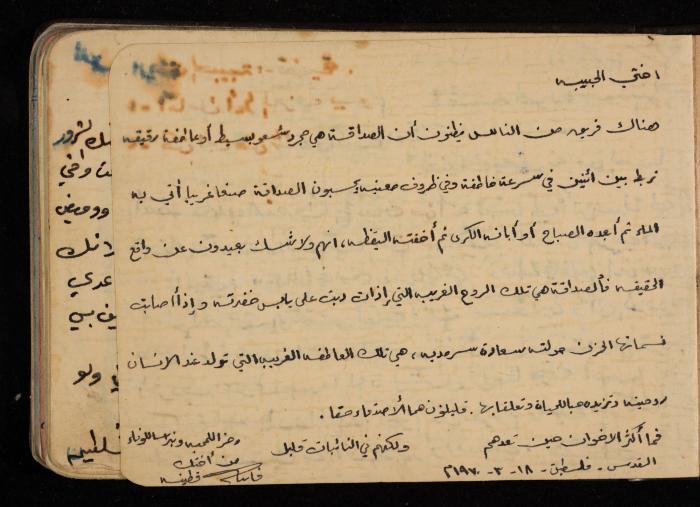 اختي الحبيبه
هناك فريق من الناس يظنون أن الصداقة هي مجرد شعور بسيط أو عاطفة رقيقه
تربط بين اثنين في سرعة خاطفة وفي ظروف معينه يحسبون الصداقة ضيفا غريبا أتى به
المساء ثم أبعده الصباح أو أبانه الكرى ثم أخفته اليقظه، انهم ولا شك بعيدون عن واقع
الحقيقه فالصداقة هي تلك الروح الغريبه التي إذا دبت على يابس خضرته وإذا أصابت
نسماتها الحزن حولته سعادة سرمديه، هي تلك العاطفه الغريبه التي تولد عند الانسان
روحيته وتزيده حبا للحياة وتعلقا بها. قليلون هم الأصدقاء حقا.
فما أكثر الاخوان حين تعدهم ولكنهم في النائبات قليل
رمز المحبه ونبراس الوفاء
القدس - فلسطين - ١٨ - ٣ - ١٩٧٠م
من أختك
لشرور
واخي
ووميض
انك
عدي
بين يدي
ولو
فلسطين